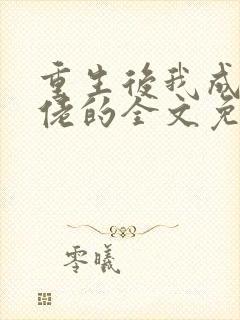 重生後我成
佬的全文免
零曦